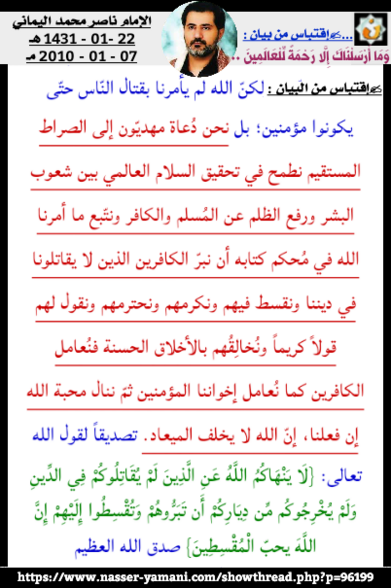 الإمام ناصر محمد اليماني
22 - 01 - 1431 هـ
07 - 01 - 2010 مـ
...إقتباس من بيان :
وَمَا أَرْسَلْنَاكَ إِلَّا رَحْمَةً لِّلْعَالَمِينَ ..
إقتباس من البيان : لكنّ الله لم يأمرنا بقتال النّاس حتّى
يكونوا مؤمنين؛ بل نحن دُعاة مهديّون إلى الصراط
المستقيم نطمح في تحقيق السلام العالمي بين شعوب
البشر ورفع الظلم عن المُسلم والكافر ونتّبع ما أمرنا
الله في مُحكم كتابه أن نبرّ الكافرين الذين لا يقاتلونا
في ديننا ونقسط فيهم ونكرمهم ونحترمهم ونقول لهم
قولاً كريماً ونُخالِقُهم بالأخلاق الحسنة فنُعامل
الكافرين كما نُعامل إخواننا المؤمنين ثمّ ننال محبة الله
إن فعلنا، إنّ الله لا يخلف الميعاد. تصديقاً لقول الله
تعالى: {لَا يَنْهَاكُمُ اللَّهُ عَنِ الَّذِينَ لَمْ يُقَاتِلُوكُمْ فِي الدِّينِ
وَلَمْ يُخْرِجُوكُم مِّن دِيَارِكُمْ أَن تَبَرُّوهُمْ وَتُقْسِطُوا إِلَيْهِمْ إِنَّ
اللَّهَ يحبّ الْمُقْسِطِينَ} صدق الله العظيم
https://www.nasser-yamani.com/showthread.php?p=96199